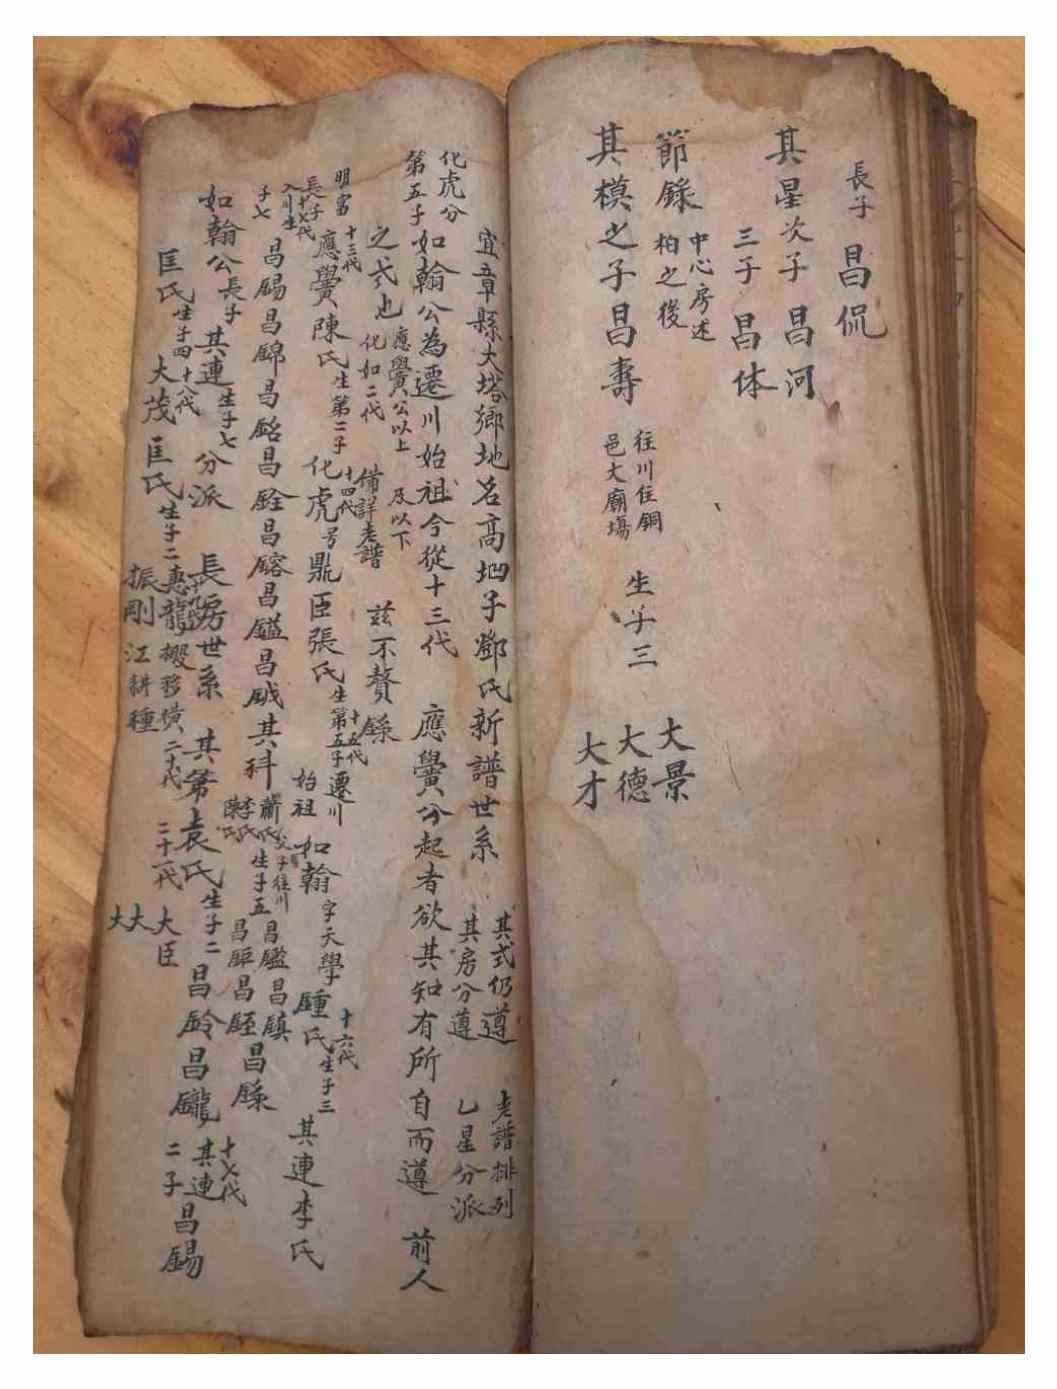 長子 昌侃
其星次子 昌河
三子 昌体
節錄 中心房述
柏之後
其模之子昌壽 往川住銅
邑大廟塲 生子三 大景
大德
大才
宜章縣大塔鄉地名高坭子鄧氏新譜世系 其式仍遵 老譜排列
其房分遵 乙星分派
化虎分
第五子 如翰公為遷川始祖今從十三代 應黌分起者欲其知有所自而遵 前人
之式也 應黌公以上 及以下
化如二代 備詳老譜 茲不贅錄
十三代 應黌陳氏生第二子 十四代 化虎号鼎臣張氏生第五子 十五代 遷川
始祖 如翰字天學 鍾氏生子三 十六代 其連李氏
長子 十七代
入川生
子七 昌錫昌錦昌銘昌銓昌鎔昌鎰昌鉞其科 蕭氏
李氏
陳氏 父子往川
生子五 昌鑑昌鎮
昌 昌 昌錄
如翰公長子其連生子七分派 長房世系 其第袁氏生子二昌齡昌 十七代 其連
二子 昌錫
匡氏生子四 十八代 大茂匡氏生子二 惠龍搬移横
振剛 江耕種 二十代 二十一代 大臣
大
大